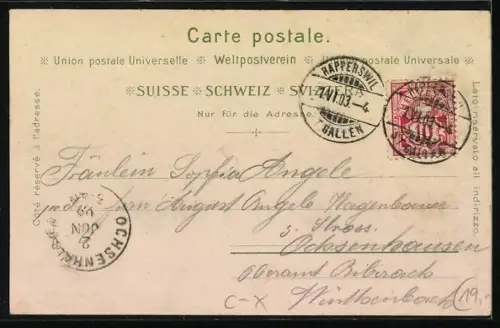 Carte postale.
Union postale Universelle Weltpostverein Union postale Universale
SUISSE SCHWEIZ SVIZZERA
Nur für die Adresse.
Côté réservé à l'adresse.
Lato riservato all indirizzo.
RAPPERSWIL
7.VI.03-4
GALLEN
10
Fräulein Sophia Angele
Herrn August Angele Wagenbauer
z. Ross.
Ochsenhausen
Oberamt Biberach
Württemberg
OCHSENHAUSEN
JUN
C-X
19,-